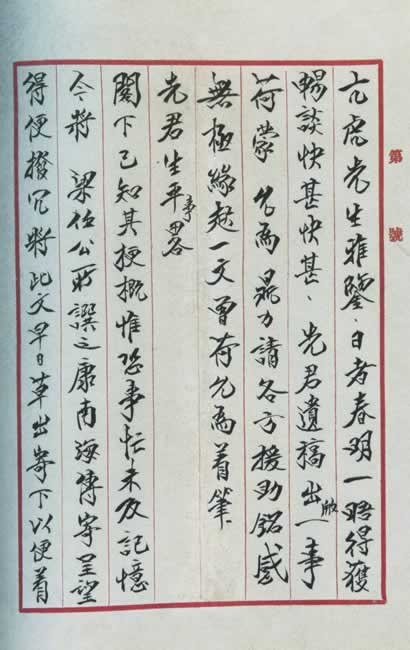 第 號
亢虎先生雅鑒、日者春明一晤得獲
暢談快甚快甚、先君遺稿出版一事
荷蒙 允為 鼎力請各方援助銘感
無極緣起一文曾荷允為着筆
先君生平事畧
閣下已知其梗概惟恐事忙未及記憶
今將 梁任公所譔之康南海傳寄呈望
得便撥冗將此文早日草出寄下以便着